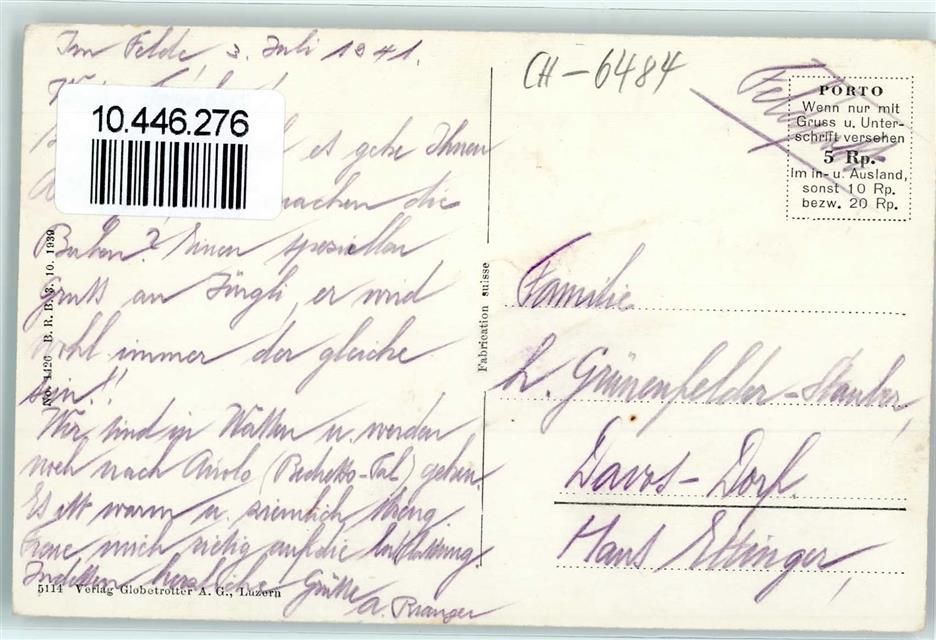 Im Felde, 3. Juli 1941.
10.446.276
es gehe Ihnen
machen die
Buben? Einen speziellen
Gruss an Jürgli, er wird
wohl immer der gleiche
sein!!
Wir sind in Watten u. werden
noch nach Airolo (Bedretto-Tal) gehen.
Es ist warm u. ziemlich streng.
Freue mich riesig auf die Entlassung
Indessen herzliche Grüsse
5114 Verlag Globetrotter A. G., Luzern
No. 1426 B. R. B. 3. 10. 1939
Fabrication suisse
CH-6484
PORTO
Wenn nur mit
Gruss u. Unter-
schrift versehen
5 Rp.
Im In- u. Ausland,
sonst 10 Rp.
bezw. 20 Rp.
Familie
L. Grünenfelder-Stauber,
Davos-Dorf.
Haus Ettinger,